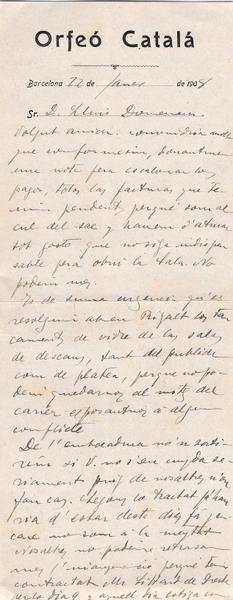 Orfeó Català
Barcelona 22 de Janer de 1908
Sr. D. Lluis Domenech
Volgut amich: convindria molt
que conformessin, donantme
una nota pera escalonar los
pagos, totas las facturas que te-
nim pendents perqué som al
cul del sac y havem d'aturar
tot gasto que no siga indispen-
sable pera obrir la Sala. No
podem mes.
Es de suma urgencia qu'es
resolguin ab en Rigalt los tan-
caments de vidre de las salas
de descans, tant del publich
com de platea, perque no po-
dem quedarnos al mitg del
carrer esposantnos á algun
conflicte
De l' no'n sorti-
rém si V. no 'ns ajuda se-
riament puig de nosaltres no'n
fan cas. Segons lo tractat ja hau-
ria d'estar llest dies fa y en-
care no som á la meytat
Nosaltres no podem retrasar
mes l'inauguració perque tenim
contractat
pel dia 9 y aquell dia